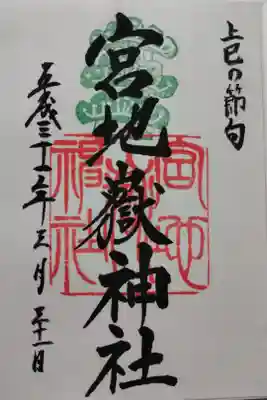 上巳の節句
宮地嶽神社
平成三十一年三月三十一日
宮地
嶽神社